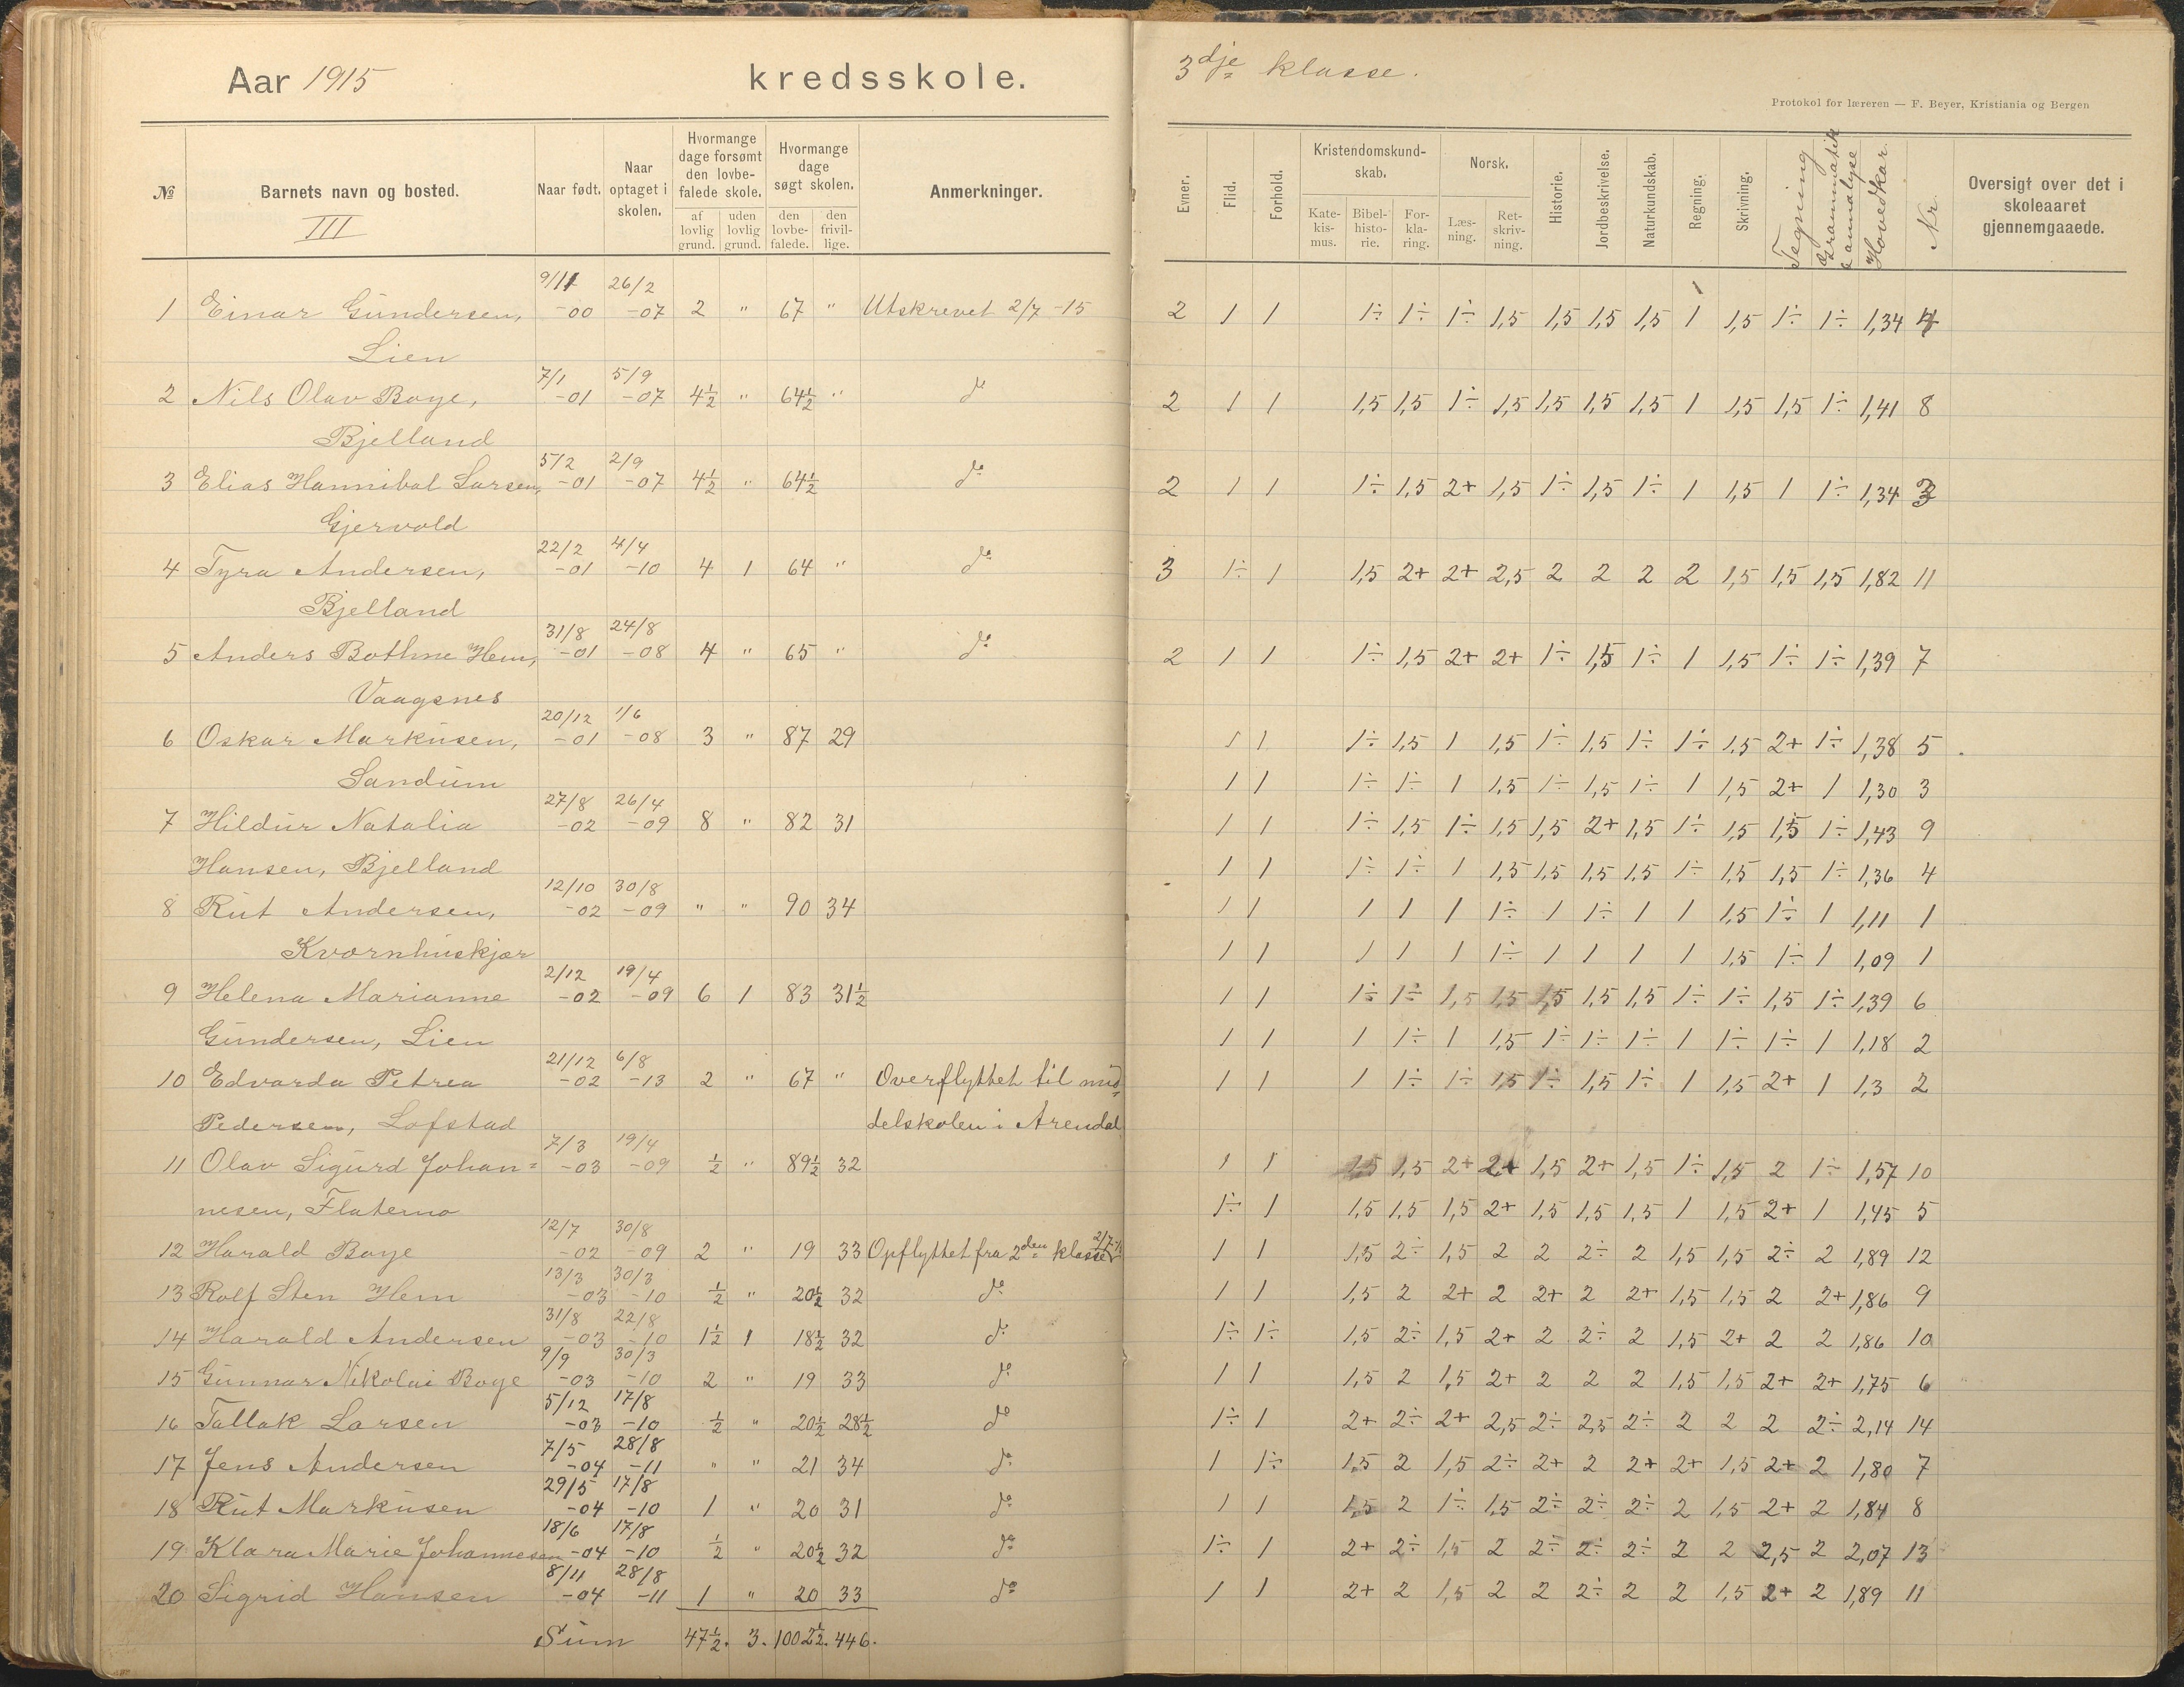 Aar 1915 kredsskole.
№ Barnets navn og bosted. Naar født. Naar optaget i skolen. Hvormange dage forsømt den lovbefalede skole. af lovlig grund. uden lovlig grund. Hvormange dage søgt skolen. den lovbefalede. den frivillige. Anmerkninger.
III
9/11 26/2
1 Einar Gundersen, -00 -07 2 " 67 " Utskrevet 2/7 -15
Lien
7/1 5/9
2 Nils Olav Boye, -01 -07 4½ " 64½ " do
Bjelland
5/2 2/9
3 Elias Hannibal Larsen, -01 -07 4½ " 64½ do
Gjervold
22/2 4/4
4 Tyra Andersen, -01 -10 4 1 64 " do
Bjelland
31/8 24/8
5 Anders Bothne Hem, -01 -08 4 " 65 " do
Vaagsnes
20/12 1/6
6 Oskar Markusen, -01 -08 3 " 87 29
Sandum
27/8 26/4
7 Hildur Natalia -02 -09 8 " 82 31
Hansen, Bjelland
12/10 30/8
8 Rut Andersen, -02 -09 " " 90 34
Kvornhuskjær
2/12 19/4
9 Helena Marianne -02 -09 6 1 83 31½
Gundersen, Lien
21/12 6/8
10 Edvarda Petrea -02 -13 2 " 67 " Overflyttet til mid=
Pedersen, Lofstad delskolen i Arendal
7/3 19/4
11 Olav Sigurd Johan= -03 -09 ½ " 89½ 32
nesen, Flatemo
12/7 30/8
12 Harald Boye -02 -09 2 " 19 33 Opflyttet fra 2den klasse
13/3 30/3
13 Rolf Sten Hem -03 -10 ½ " 20½ 32 do
31/8 22/8
14 Harald Andersen -03 -10 1½ 1 18½ 32 do
9/9 30/3
15 Gunnar Nikolai Boye -03 -10 2 " 19 33 do
5/12 17/8
16 Tallak Larsen -03 -10 ½ " 20½ 28½ do
7/5 28/8
17 Jens Andersen -04 -11 " " 21 34 do
29/5 17/8
18 Rut Markusen -04 -10 1 " 20 31 do
18/6 17/8
19 Klara Marie Johannesen -04 -10 ½ " 20½ 32 do
8/11 28/8
20 Sigrid Hansen -04 -11 1 " 20 33 do
Sum 47½. 3. 1002½. 446.
3dje klasse.
Protokol for læreren — F. Beyer, Kristiania og Bergen
Evner. Flid. Forhold. Kristendomskundskab. Katekismus. Bibelhistorie. Forklaring. Norsk. Læsning. Retskrivning. Historie. Jordbeskrivelse. Naturkundskab. Regning. Skrivning. Tegning Grammatik & analyse Hovedkar. Nr. Oversigt over det i skoleaaret gjennemgaaede.
2 1 1 1÷ 1÷ 1÷ 1,5 1,5 1,5 1,5 1 1,5 1÷ 1÷ 1,34 4
2 1 1 1,5 1,5 1÷ 1,5 1,5 1,5 1,5 1 1,5 1,5 1÷ 1,41 8
2 1 1 1÷ 1,5 2+ 1,5 1÷ 1,5 1÷ 1 1,5 1 1÷ 1,34 3
3 1÷ 1 1,5 2+ 2+ 2,5 2 2 2 2 1,5 1,5 1,5 1,82 11
2 1 1 1÷ 1,5 2+ 2+ 1÷ 1,5 1÷ 1 1,5 1÷ 1÷ 1,39 7
1 1 1÷ 1,5 1 1,5 1÷ 1,5 1÷ 1÷ 1,5 2+ 1÷ 1,38 5
1 1 1÷ 1÷ 1 1,5 1÷ 1,5 1÷ 1 1,5 2+ 1 1,30 3
1 1 1÷ 1,5 1÷ 1,5 1,5 2+ 1,5 1÷ 1,5 1,5 1÷ 1,43 9
1 1 1÷ 1÷ 1 1,5 1,5 1,5 1,5 1÷ 1,5 1,5 1÷ 1,36 4
1 1 1 1 1 1÷ 1 1÷ 1 1 1,5 1÷ 1 1,11 1
1 1 1 1 1 1÷ 1 1 1 1 1,5 1÷ 1 1,09 1
1 1 1÷ 1÷ 1,5 1,5 1,5 1,5 1,5 1÷ 1÷ 1,5 1÷ 1,39 6
1 1 1 1÷ 1 1,5 1÷ 1÷ 1÷ 1 1÷ 1÷ 1 1,18 2
1 1 1 1÷ 1÷ 1,5 1÷ 1,5 1÷ 1 1,5 2+ 1 1,3 2
1 1 1,5 1,5 2+ 2+ 1,5 2+ 1,5 1÷ 1,5 2 1÷ 1,57 10
1÷ 1 1,5 1,5 1,5 2+ 1,5 1,5 1,5 1 1,5 2+ 1 1,45 5
1 1 1,5 2÷ 1,5 2 2 2÷ 2 1,5 1,5 2÷ 2 1,89 12
1 1 1,5 2 2+ 2 2+ 2 2+ 1,5 1,5 2 2+ 1,86 9
1÷ 1÷ 1,5 2÷ 1,5 2+ 2 2÷ 2 1,5 2+ 2 2 1,86 10
1 1 1,5 2 1,5 2+ 2 2 2 1,5 1,5 2+ 2+ 1,75 6
1÷ 1 2+ 2÷ 2+ 2,5 2÷ 2,5 2÷ 2 2 2 2÷ 2,14 14
1 1÷ 1,5 2 1,5 2÷ 2+ 2 2+ 2+ 1,5 2+ 2 1,80 7
1 1 1,5 2 1÷ 1,5 2÷ 2÷ 2÷ 2 1,5 2+ 2 1,84 8
1÷ 1 2+ 2÷ 1,5 2 2÷ 2÷ 2÷ 2 2 2,5 2 2,07 13
1 1 2+ 2 1,5 2 2 2÷ 2 2 1,5 2+ 2 1,89 11